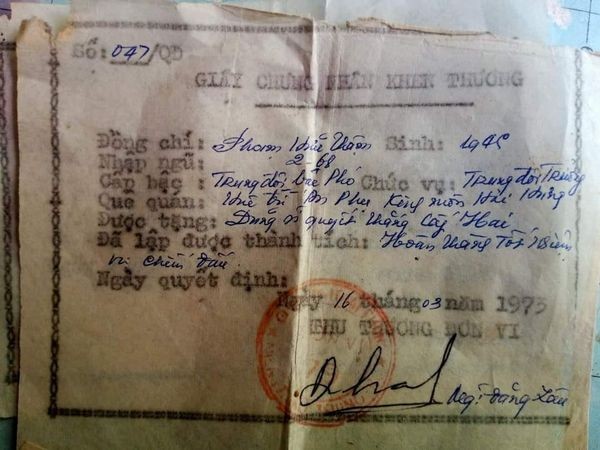 Số: 047/QĐ
GIẤY CHỨNG NHẬN KHEN THƯỞNG
Đồng chí: Phạm Sinh: 1945
Nhập ngũ: 2-68
Cấp bậc: Trung đội Bậc Phó Chức vụ: Trung đội Trưởng
Quê quán: Phụ Hải
Được tặng: Dũng sĩ quyết thắng Cấp Hai
Đã lập được thành tích: Hoàn thành Tốt Nhiệm
vụ chiến đấu
Ngày quyết định:
Ngày 16 tháng 03 năm 1975
THỦ TRƯỞNG ĐƠN VỊ
Đăng